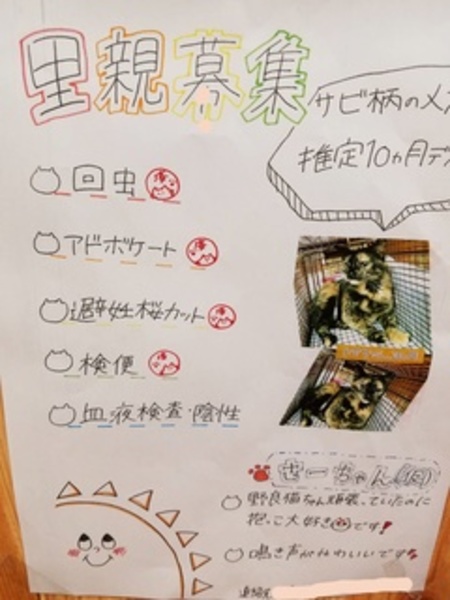 里親募集
サビ柄のメス
推定10ヵ月デ
回虫 済
アドボケート 済
避妊桜カット 済
検便 済
血液検査 陰性
せーちゃん(仮)
野良猫ちゃん頑張っていたのに
抱っこ大好きです!
鳴き声がかわいいです
連絡先